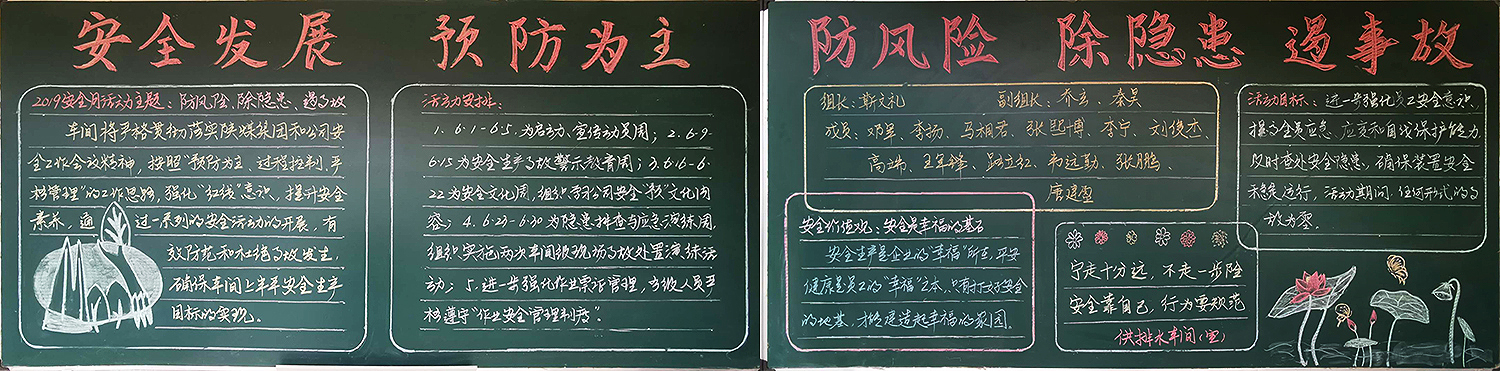 安全发展 预防为主
2019安全月活动主题：防风险、除隐患、遏事故
车间将严格贯彻落实陕煤集团和公司安
全工作会议精神，按照“预防为主、过程控制、平
衡管理”的工作思路，强化“红线”意识，提升安全
素养，通过一系列的安全活动的开展，有
效防范和杜绝事故发生，
确保车间上半年安全生产
目标的实现。
活动安排：
1、6·1-6·5为启动、宣传动员周；2、6·9-
6·15为安全生产事故警示教育周；3、6·16-6·
22为安全文化周，组织学习公司安全“书”文化内
容；4、6·23-6·30为隐患排查与应急演练周，
组织实施两次车间级现场事故处置演练活
动；5、进一步强化作业票证管理，各级人员严
格遵守“作业安全管理制度”。
防风险 除隐患 遏事故
组长：靳文礼 副组长：乔立、秦昊
成员：邓军、李扬、马相君、张熙博、李宁、刘俊杰、
高瑞、王军锋、路立红、韦远勤、张鹏、
唐建雷
安全价值观：安全是幸福的基石
安全生产是企业的“幸福”所在，平安
健康是员工的“幸福”之本，只有打好安全
的地基，才能建造起幸福的家园。
宁走十分远，不走一步险
安全靠自己，行为要规范
供排水车间（宣）
活动目标：进一步强化员工安全意识、
提高全员应急、应变和自我保护能力，
及时查处安全隐患，确保装置安全
未稳定运行，活动期间任何形式的事
故为零。